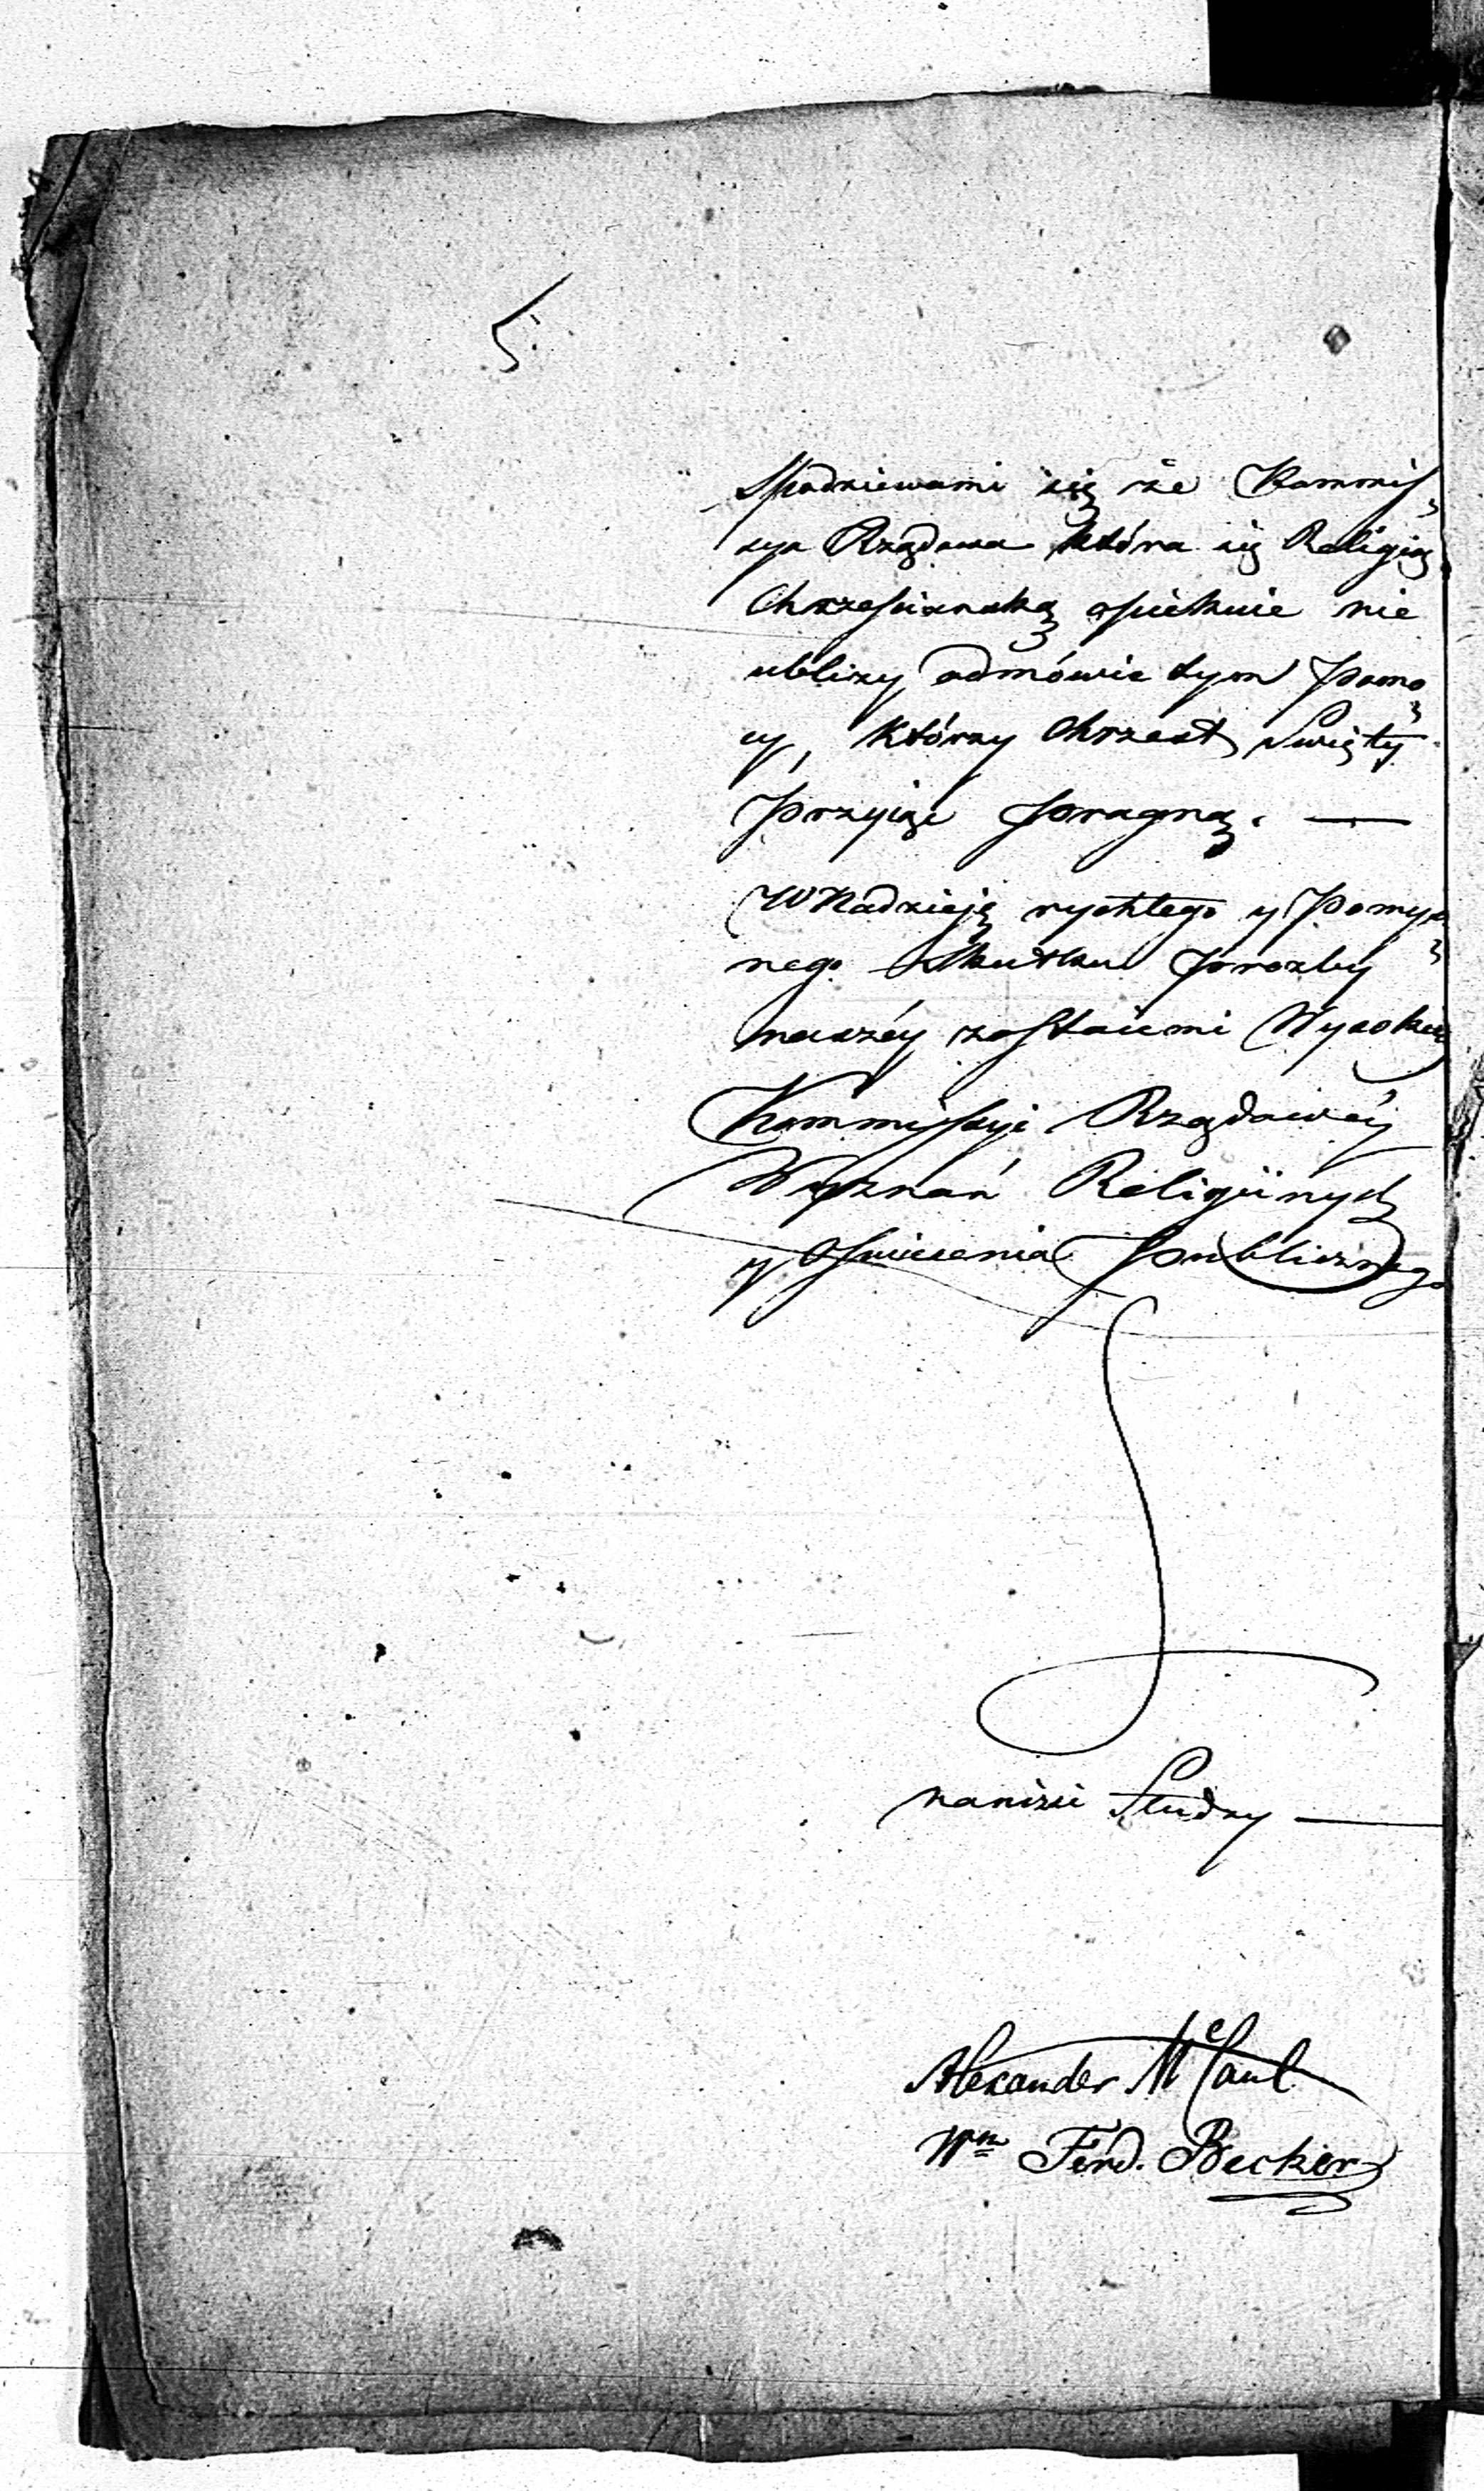 5.
Spodziewami się że Kommis=
sya Rządowa która się Religią
Chrześcianską opiekuie nie
ubliży odmówić tym Pomo=
cy, którzy Chrzest Swięty
Przyiąć pragną. —
W Nadzieję rychłego y Pomyśl=
nego Skutku prozby
naszéy zostaiemi Wysokiéy
Kommissyi Rządowéy
Wyznań Religiinych
y Oswiecenia Publicznego
nanizsi Słudzy —
Alexander McCaul
Wm Ferd. Becker